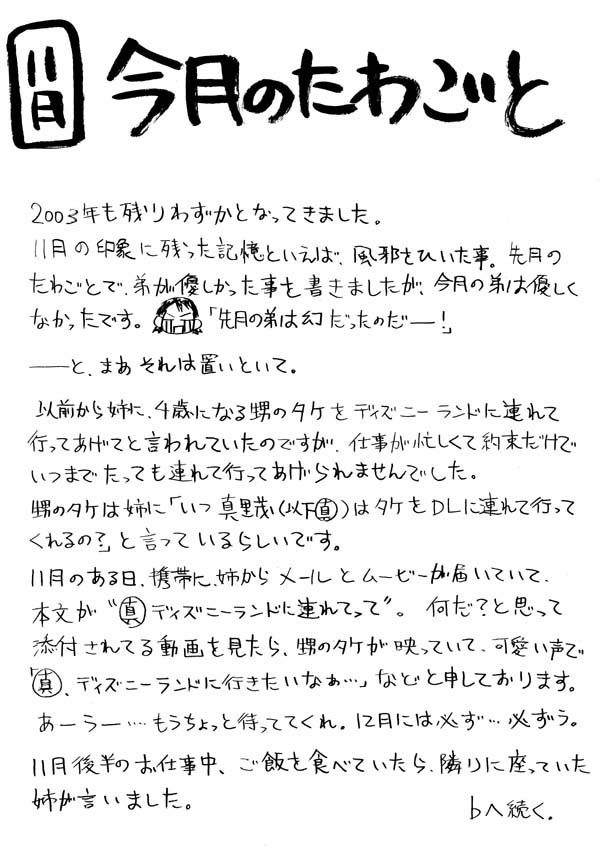 11月
今月のたわごと
2003年も残りわずかとなってきました。
11月の印象に残った記憶といえば、風邪をひいた事。先月の
たわごとで、弟が優しかった事を書きましたが、今月の弟は優しく
なかったです。「先月の弟は幻だったのだー!」
――と、まあそれは置いといて。
以前から姉に、4歳になる甥のタケをディズニーランドに連れて
行ってあげてと言われていたのですが、仕事が忙しくて約束だけで
いつまでたっても連れて行ってあげられませんでした。
甥のタケは姉に「いつ真里茂(以下㊥真)はタケをDLに連れて行って
くれるの?」と言っているらしいです。
11月のある日、携帯に、姉からメールとムービーが届いていて、
本文が“真ディズニーランドに連れてって”。何だ?と思って
添付されてる動画を見たら、甥のタケが映っていて、可愛い声で
「真、ディズニーランドに行きたいなぁ…」などと申しております。
あーうー…もうちょっと待っててくれ。12月には必ず…必ずう。
11月後半のお仕事中、ご飯を食べていたら、隣りに座っていた
姉が言いました。
bへ続く.